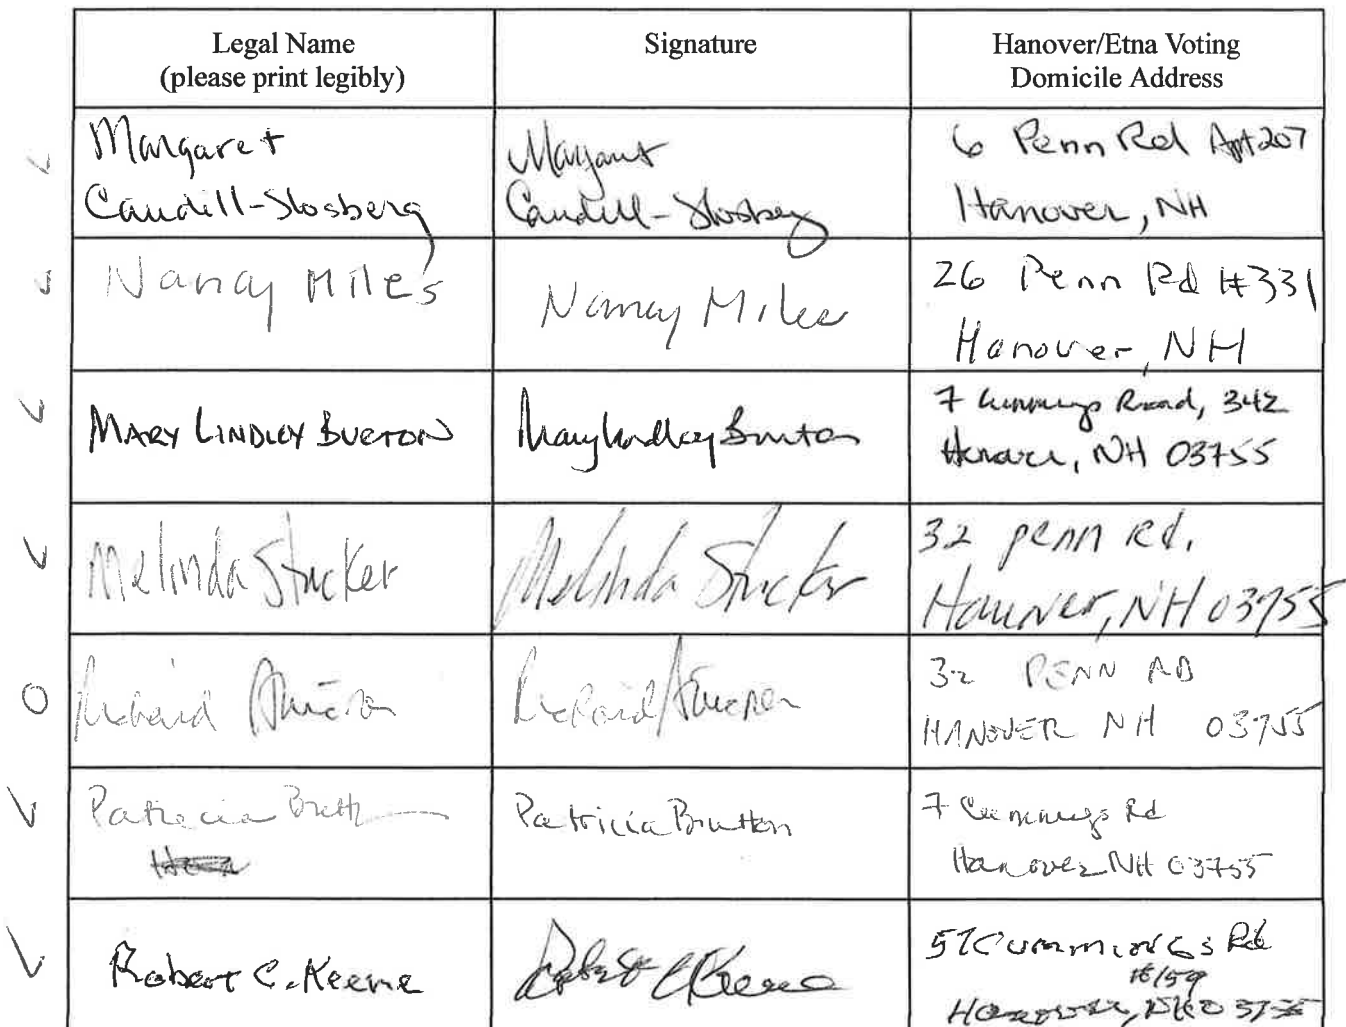 Legal Name
(please print legibly)
Signature
Hanover/Etna Voting
Domicile Address
Margaret
Caudill-Slosberg
Margaret
Caudill-Slosberg
6 Penn Rd Apt 207
Hanover, NH
Nancy Miles
Nancy Miles
26 Penn Rd #331
Hanover, NH
MARY LINDLEY BURTON
Mary Lindley Burton
7 Cummings Road, 342
Hanover, NH 03755
Melinda Stucker
Melinda Stucker
32 Penn Rd.
Hanover, NH 03755
Richard
Richard
32 PENN RD
HANOVER NH 03755
Patricia
Patricia
7 Cummings Rd
Hanover NH 03755
Robert C. Keene
Robert C Keene
57 Cummings Rd
#159
Hanover, NH 03755